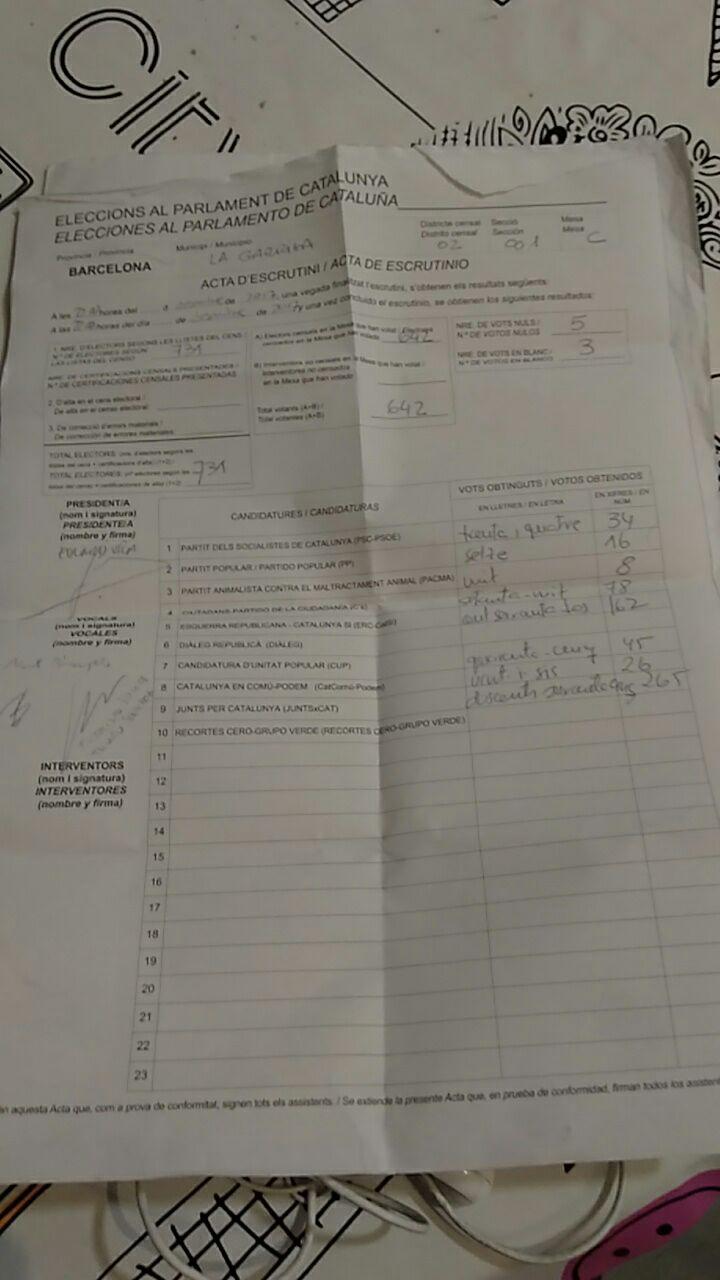 ELECCIONS AL PARLAMENT DE CATALUNYA
ELECCIONES AL PARLAMENTO DE CATALUÑA
Província / Provincia
Municipi / Municipio
BARCELONA
LA GARRIGA
Districte censal Secció Mesa
Distrito censal Sección Mesa
02 001 C
ACTA D'ESCRUTINI / ACTA DE ESCRUTINIO
A les hores del d de 2017, una vegada finalitzat l'escrutini, s'obtenen els resultats següents:
A las horas del día de de 2017 y una vez concluido el escrutinio, se obtienen los siguientes resultados:
1. NRE. D'ELECTORS SEGONS LES LLISTES DEL CENS /
N.º DE ELECTORES SEGÚN
LAS LISTAS DEL CENSO
731
NRE. DE CERTIFICACIONS CENSALS PRESENTADES /
N.º DE CERTIFICACIONES CENSALES PRESENTADAS
2. D'alta en el cens electoral /
De alta en el censo electoral:
3. De correcció d'errors materials /
De corrección de errores materiales:
TOTAL ELECTORS
TOTAL ELECTORES
731
A) Electors censats en la Mesa que han votat
642
B) Interventors no censats en la Mesa que han votat /
Interventores no censados
en la Mesa que han votado
Total votants (A+B) /
Total votantes (A+B)
642
NRE. DE VOTS NULS /
N.º DE VOTOS NULOS
5
NRE. DE VOTS EN BLANC /
N.º DE VOTOS EN BLANCO
3
PRESIDENT/A
(nom i signatura)
PRESIDENTE/A
(nombre y firma)
VOCALS
(nom i signatura)
VOCALES
(nombre y firma)
INTERVENTORS
(nom i signatura)
INTERVENTORES
(nombre y firma)
CANDIDATURES / CANDIDATURAS
VOTS OBTINGUTS / VOTOS OBTENIDOS
EN LLETRES / EN LETRA
EN XIFRES / EN NÚM.
1 PARTIT DELS SOCIALISTES DE CATALUNYA (PSC-PSOE) trenta i quatre 34
2 PARTIT POPULAR / PARTIDO POPULAR (PP) setze 16
3 PARTIT ANIMALISTA CONTRA EL MALTRACTAMENT ANIMAL (PACMA) vuit 8
4 CIUTADANS-PARTIDO DE LA CIUDADANÍA (C's) setanta-vuit 78
5 ESQUERRA REPUBLICANA - CATALUNYA SÍ (ERC-CatSí) cent seixanta dos 162
6 DIÀLEG REPUBLICÀ (DIÀLEG)
7 CANDIDATURA D'UNITAT POPULAR (CUP) 45
8 CATALUNYA EN COMÚ-PODEM (CatComú-Podem) vint i sis 26
9 JUNTS PER CATALUNYA (JUNTSxCAT) 265
10 RECORTES CERO-GRUPO VERDE (RECORTES CERO-GRUPO VERDE)
11
12
13
14
15
16
17
18
19
20
21
22
23
aquesta Acta que, com a prova de conformitat, signen tots els assistents. / Se extiende la presente Acta que, en prueba de conformidad, firman todos los